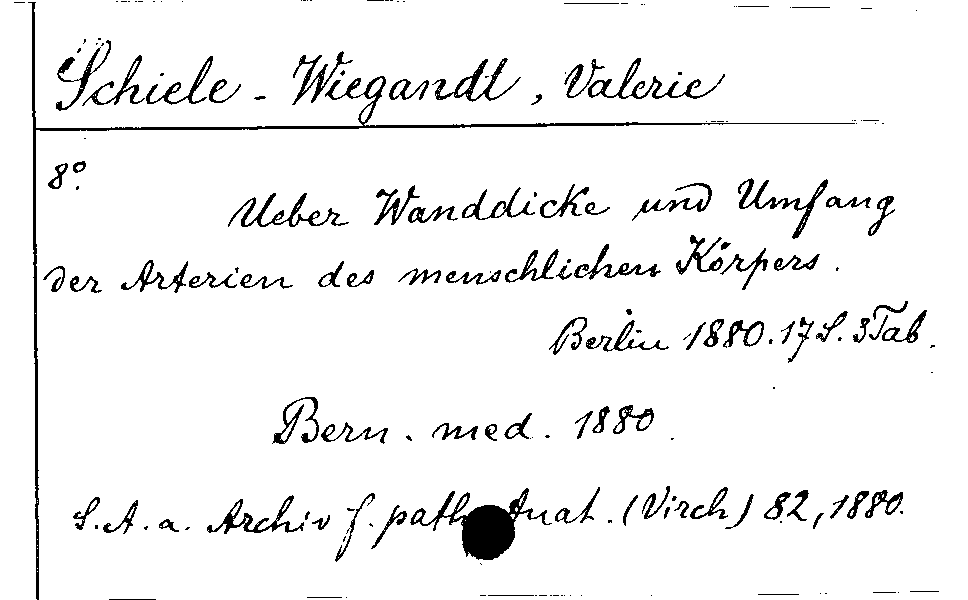 Schiele - Wiegandt, Valerie
8°.
Ueber Wanddicke und Umfang
der Arterien des menschlichen Körpers.
Berlin 1880. 17 S. 3 Tab.
Bern. med. 1880.
S. A. a. Archiv f. path. Anat. (Virch) 82, 1880.